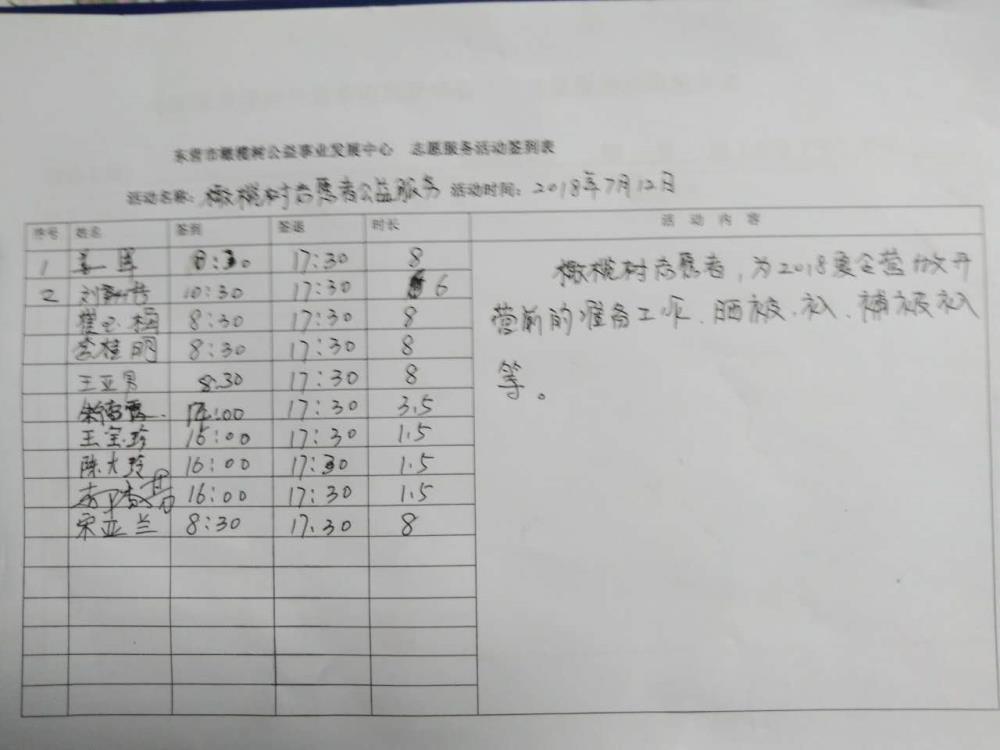 东营市橄榄树公益事业发展中心 志愿服务活动签到表
活动名称：橄榄树志愿者公益服务 活动时间：2018年7月12日
序号 姓名 签到 签退 时长 活动内容
1 8:30 17:30 8
2 刘 10:30 17:30 6
8:30 17:30 8
李桂明 8:30 17:30 8
王亚男 8.30 17:30 8
:00 17:30 3.5
王宝珍 16:00 17:30 1.5
陈大玲 16:00 17:30 1.5
16:00 17:30 1.5
宋亚兰 8:30 17.30 8
橄榄树志愿者，为2018夏令营做开
营前的准备工作、晒被、补被
等。